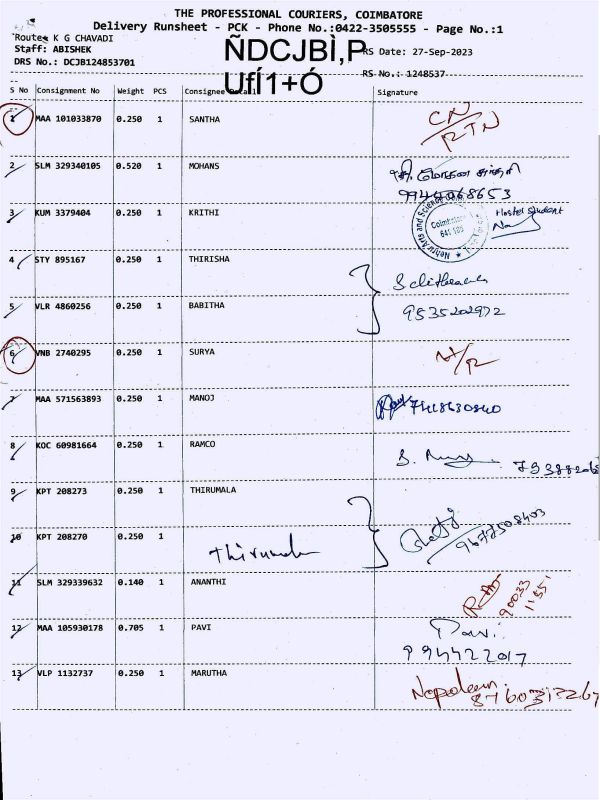 THE PROFESSIONAL COURIERS, COIMBATORE
Delivery Runsheet - PCK - Phone No.:0422-3505555 - Page No.:1
Route: K G CHAVADI
Staff: ABISHEK
DRS No.: DCJB124853701
ÑDCJBÌ,P
UfÍ1+Ó
RS Date: 27-Sep-2023
RS No.: 1248537
S No Consignment No Weight PCS Consignee Signature
1 MAA 101033870 0.250 1 SANTHA CN/RTN
2 SLM 329340105 0.520 1 MOHANS
9944068653
3 KUM 3379404 0.250 1 KRITHI Nehru Arts and Science Coimbatore 641 105 Hostel student
4 STY 895167 0.250 1 THIRISHA
5 VLR 4860256 0.250 1 BABITHA 9535202972
6 VNB 2740295 0.250 1 SURYA
7 MAA 571563893 0.250 1 MANOJ 7418630840
8 KOC 60981664 0.250 1 RAMCO
9 KPT 208273 0.250 1 THIRUMALA
10 KPT 208270 0.250 1 9677508403
11 SLM 329339632 0.140 1 ANANTHI 90033 1155
12 MAA 105930178 0.705 1 PAVI Pavi
994422017
13 VLP 1132737 0.250 1 MARUTHA Napoleon